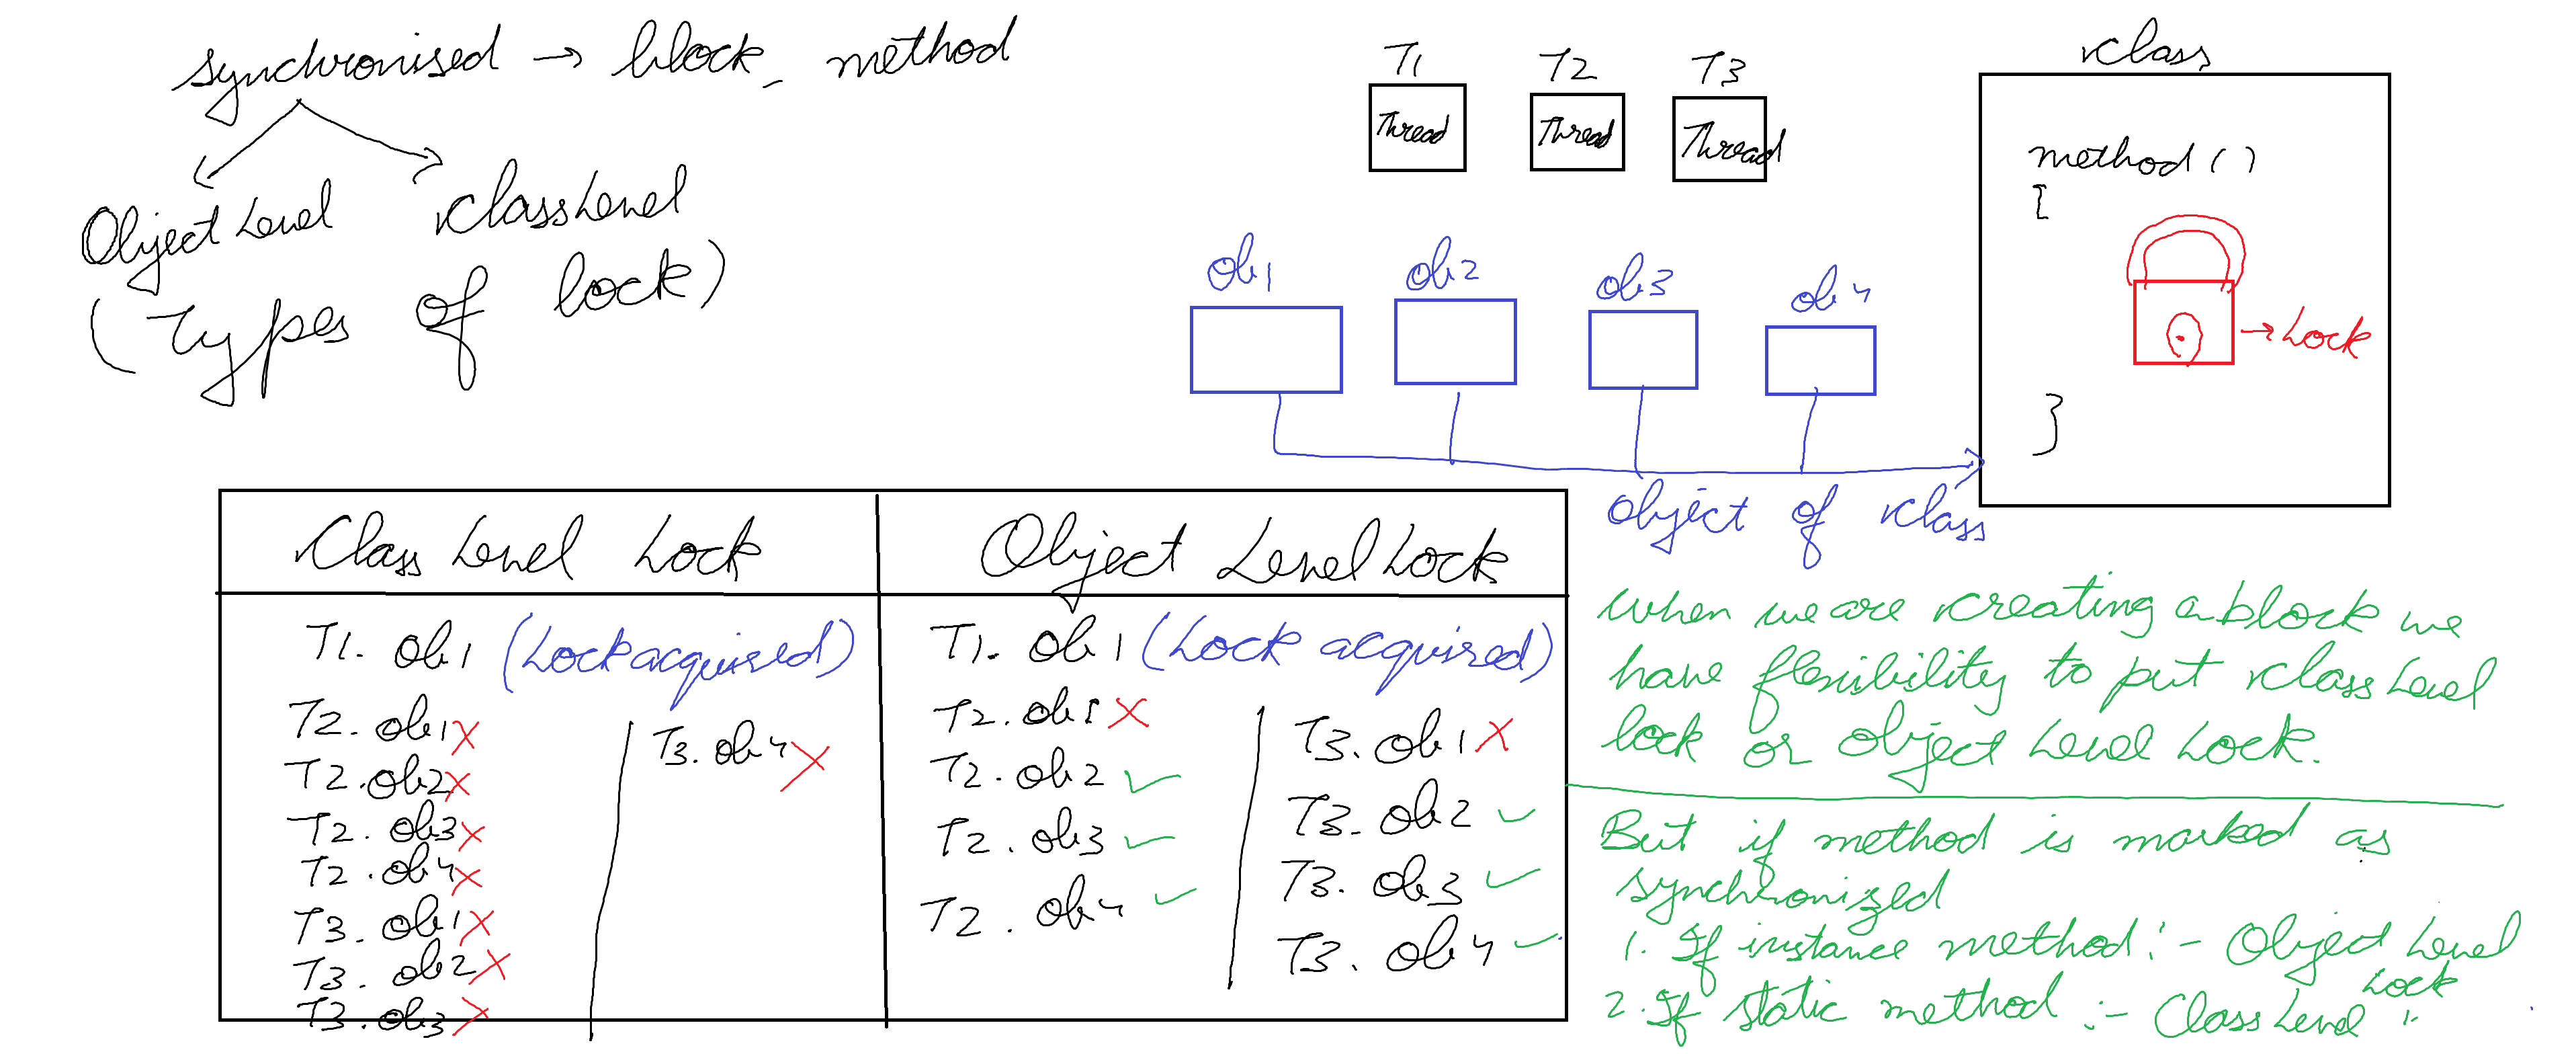 synchronised → block_ method
Object Level  class Level
(Types of lock)
T1 T2 T3
Thread Thread Thread
ob1 ob2 ob3 ob4
object of class
class
method ()
{
→ Lock
}
Class Level Lock
T1. ob1 (Lock acquired)
T2. ob1 X
T2. ob2 X
T2. ob3 X
T2. ob4 X
T3. ob1 X
T3. ob2 X
T3. ob3 X
T3. ob4 X
Object Level Lock
T1. ob1 (Lock acquired)
T2. ob1 X
T2. ob2 ✓
T2. ob3 ✓
T2. ob4 ✓
T3. ob1 X
T3. ob2 ✓
T3. ob3 ✓
T3. ob4 ✓
When we are creating a block we
have flexibility to put class Level
lock or object Level Lock.
But if method is marked as
synchronized
1. If instance method :- Object Level
Lock
2. If static method :- Class Level "